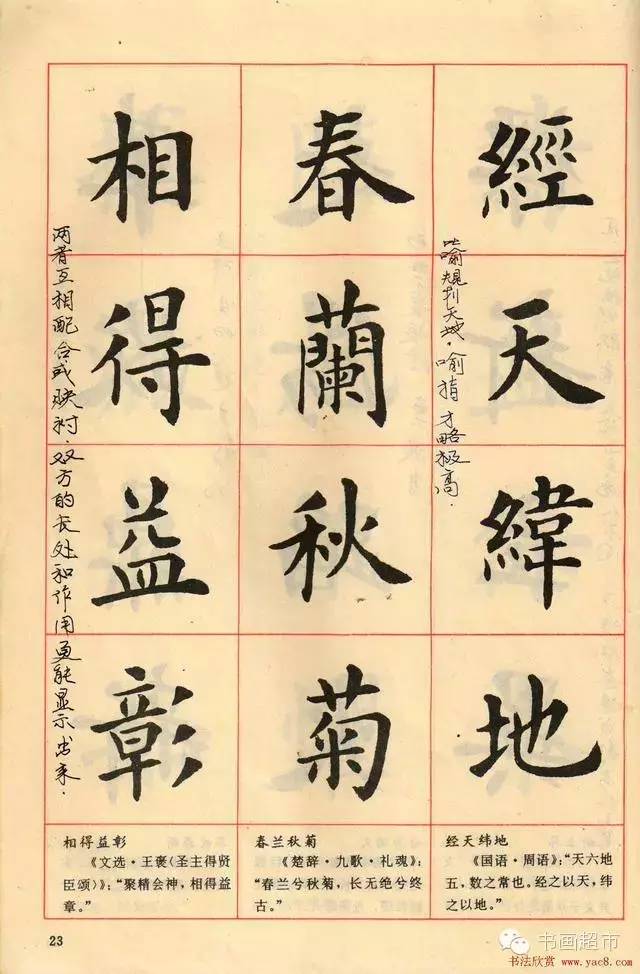 經天緯地
春蘭秋菊
相得益彰
比喻规划天地。喻指才略极高。
两者互相配合或映衬。双方的长处和作用更能显示出来。
经天纬地
《国语·周语》：“天六地
五，数之常也。经之以天，纬
之以地。”
春兰秋菊
《楚辞·九歌·礼魂》：
“春兰兮秋菊，长无绝兮终
古。”
相得益彰
《文选·王褒〈圣主得贤
臣颂〉》：“聚精会神，相得益
章。”
23
书画超市
书法欣赏 www.yac8.com